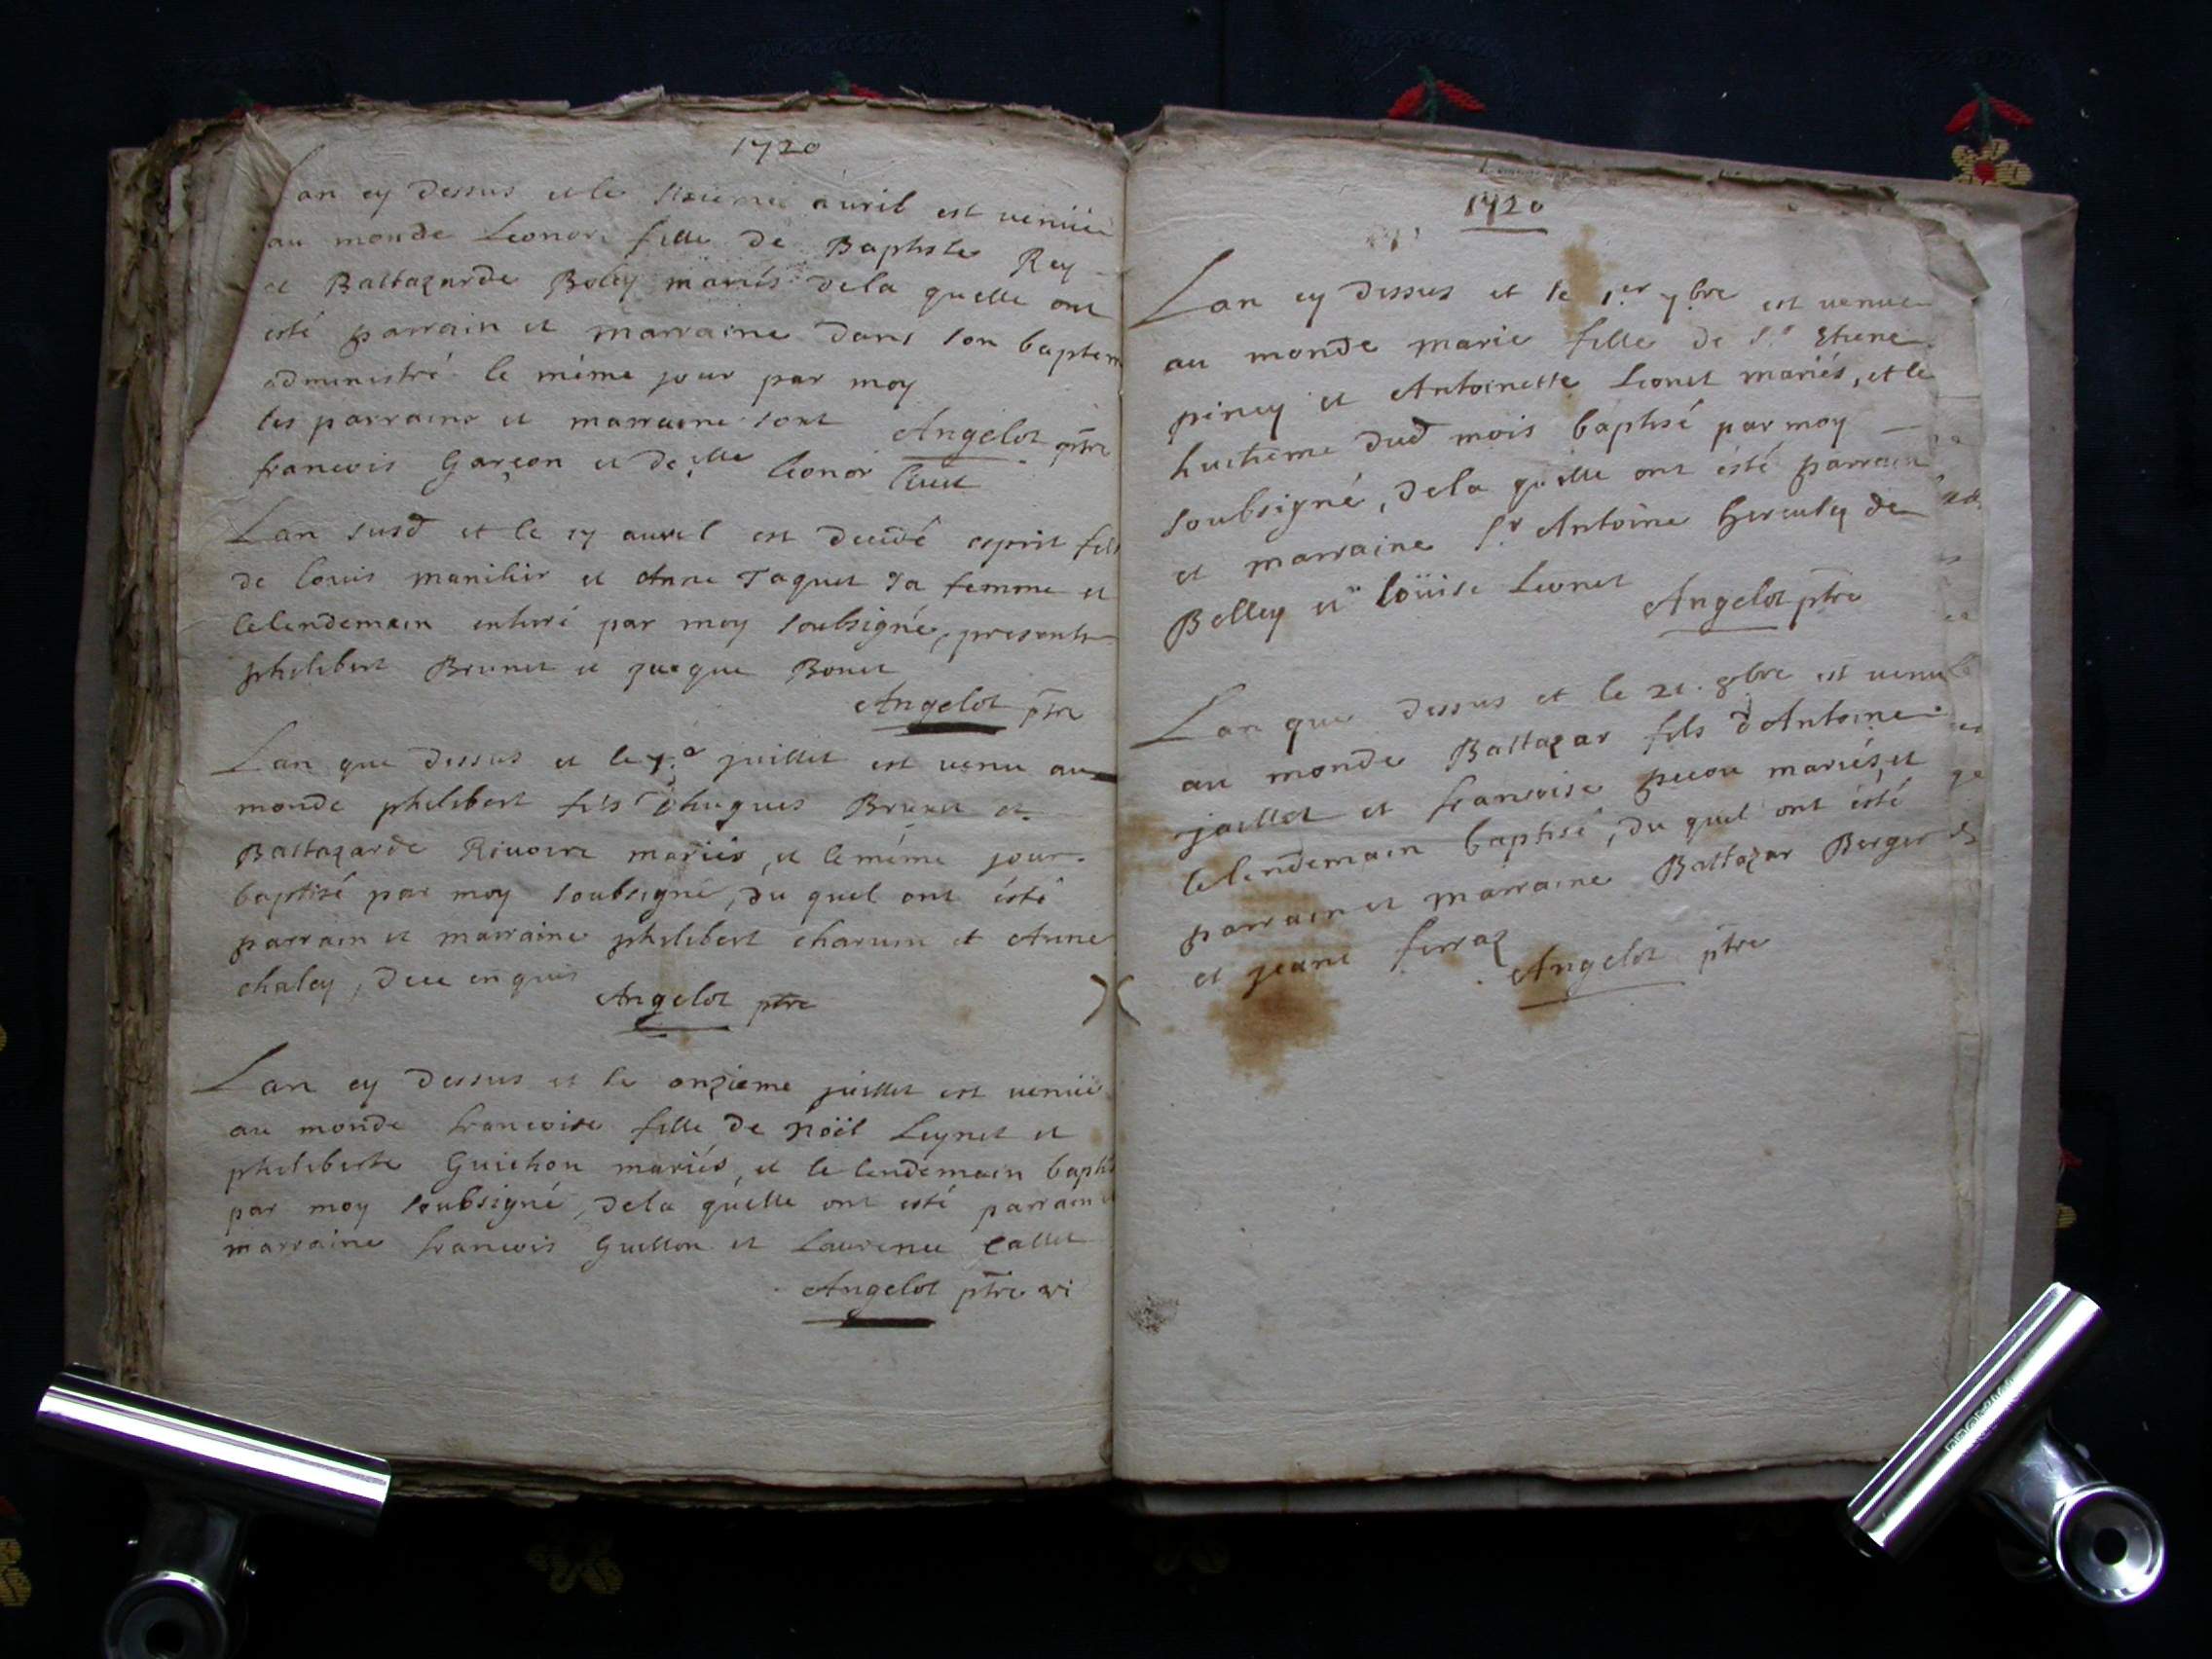 1720
Lan cy dessus et le sixieme avril est venüe
au monde Leonor fille de Baptiste Rey
et Baltazarde Boley mariés dela quelle ont
esté parrain et marraine dans son baptem
administré le méme jour par moy
les parrains et marraine sont Angelot ptre
francois Garçon et de.elle leonor
Lan susd et le 17 auril est decedé esprit fils
de louis manilier et Anne Taquet sa femme et
lelendemain enterré par moy soubsigné, presents
philibert Brunet et jacque Bonet
Angelot ptre
Lan que dessus et le juillet est venu au
monde philibert fils d'hugues Brunet et
Baltazarde Rivoire mariés, et leméme jour
baptisé par moy soubsigné, du quel ont ésté
parrain et marraine philibert charuin et Anne
chaley, dece enquis
Angelot ptre
Lan cy dessus et le onzieme juillet est venüe
au monde francoise fille de noël Leynet et
philiberte Guichon mariés, et le lendemain baptis
par moy soubsigné, dela quelle ont esté parrain et
marraine francois Guillon et Laurence callet
Angelot ptre vi
1720
Lan cy dessus et le 1.er 7.bre est venue
au monde marie fille de s.r Etiene
piney et Antoinette Leonet mariés, et le
huitieme dud mois baptisé par moy
soubsigné, dela quelle ont ésté parrain
et marraine s.r Antoine hercules de
Belley et loüise Leonet
Angelot ptre
Lan que dessus et le 21. 8bre est venu
au monde Baltazar fils d'Antoine
jaillet et francoise pecou mariés, et
lelendemain baptisé, du quel ont ésté
parrain et marraine Baltazar Berger
et jeane ferraz
Angelot ptre